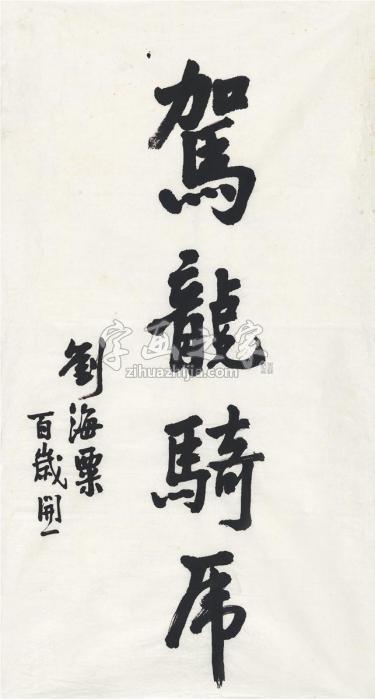 駕龍騎虎
劉海粟
百歲開一
字画之家
zihuazhijia.com